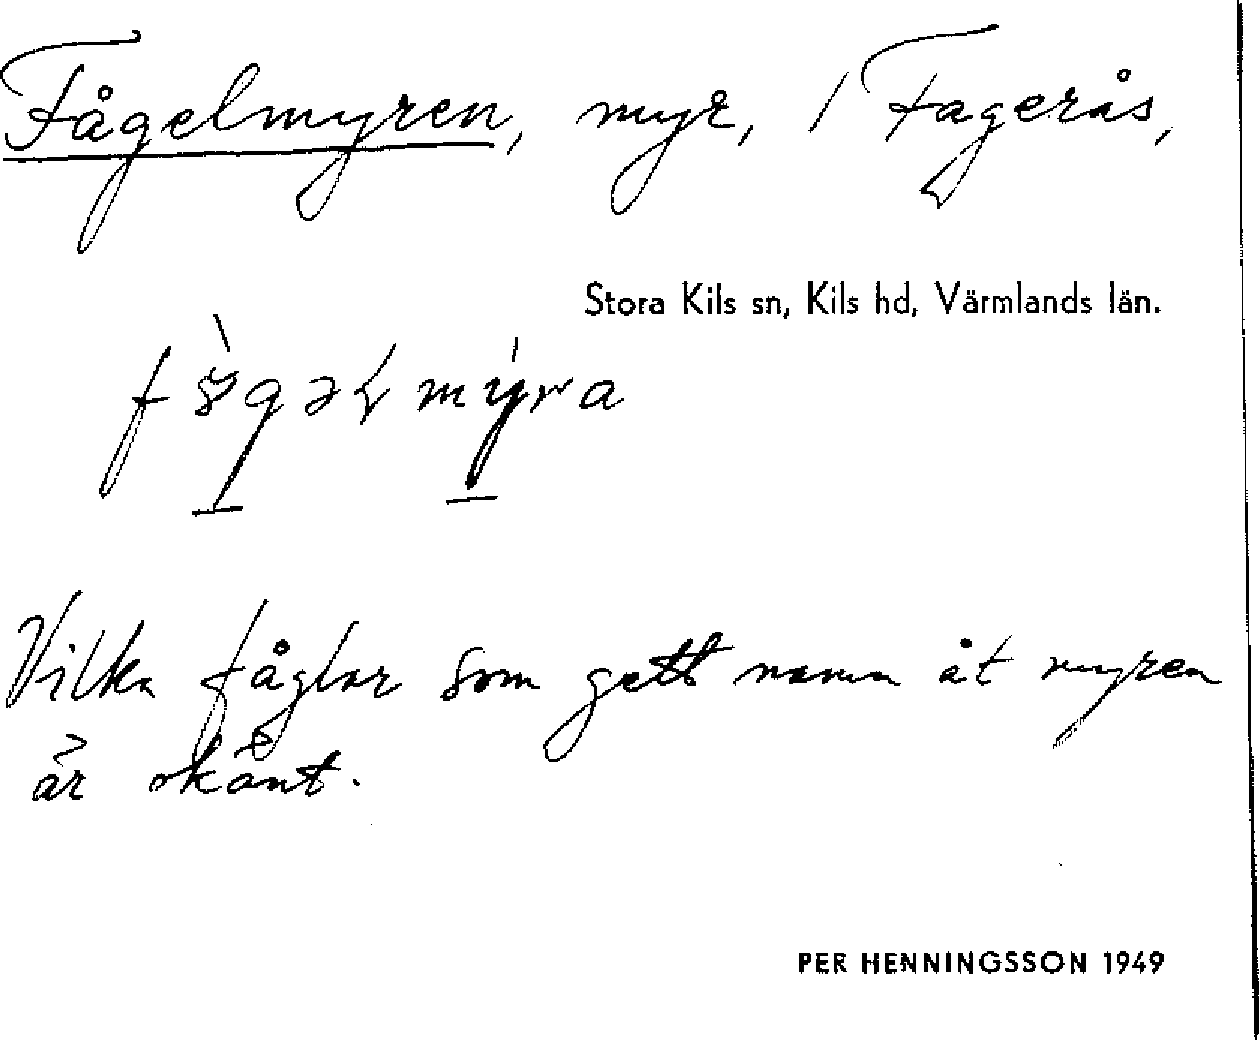 Fågelmyren, myr, / Fagerås,
Stora Kils sn, Kils hd, Värmlands län.
Vilka fåglar som gett namn åt myren
är okänt.
PER HENNINGSSON 1949